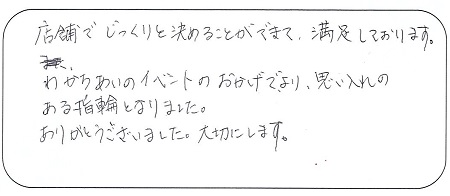 店舗でじっくりと決めることができて、満足しております。
わかちあいのイベントのおかげでより、思い入れの
ある指輪となりました。
ありがとうございました。大切にします。